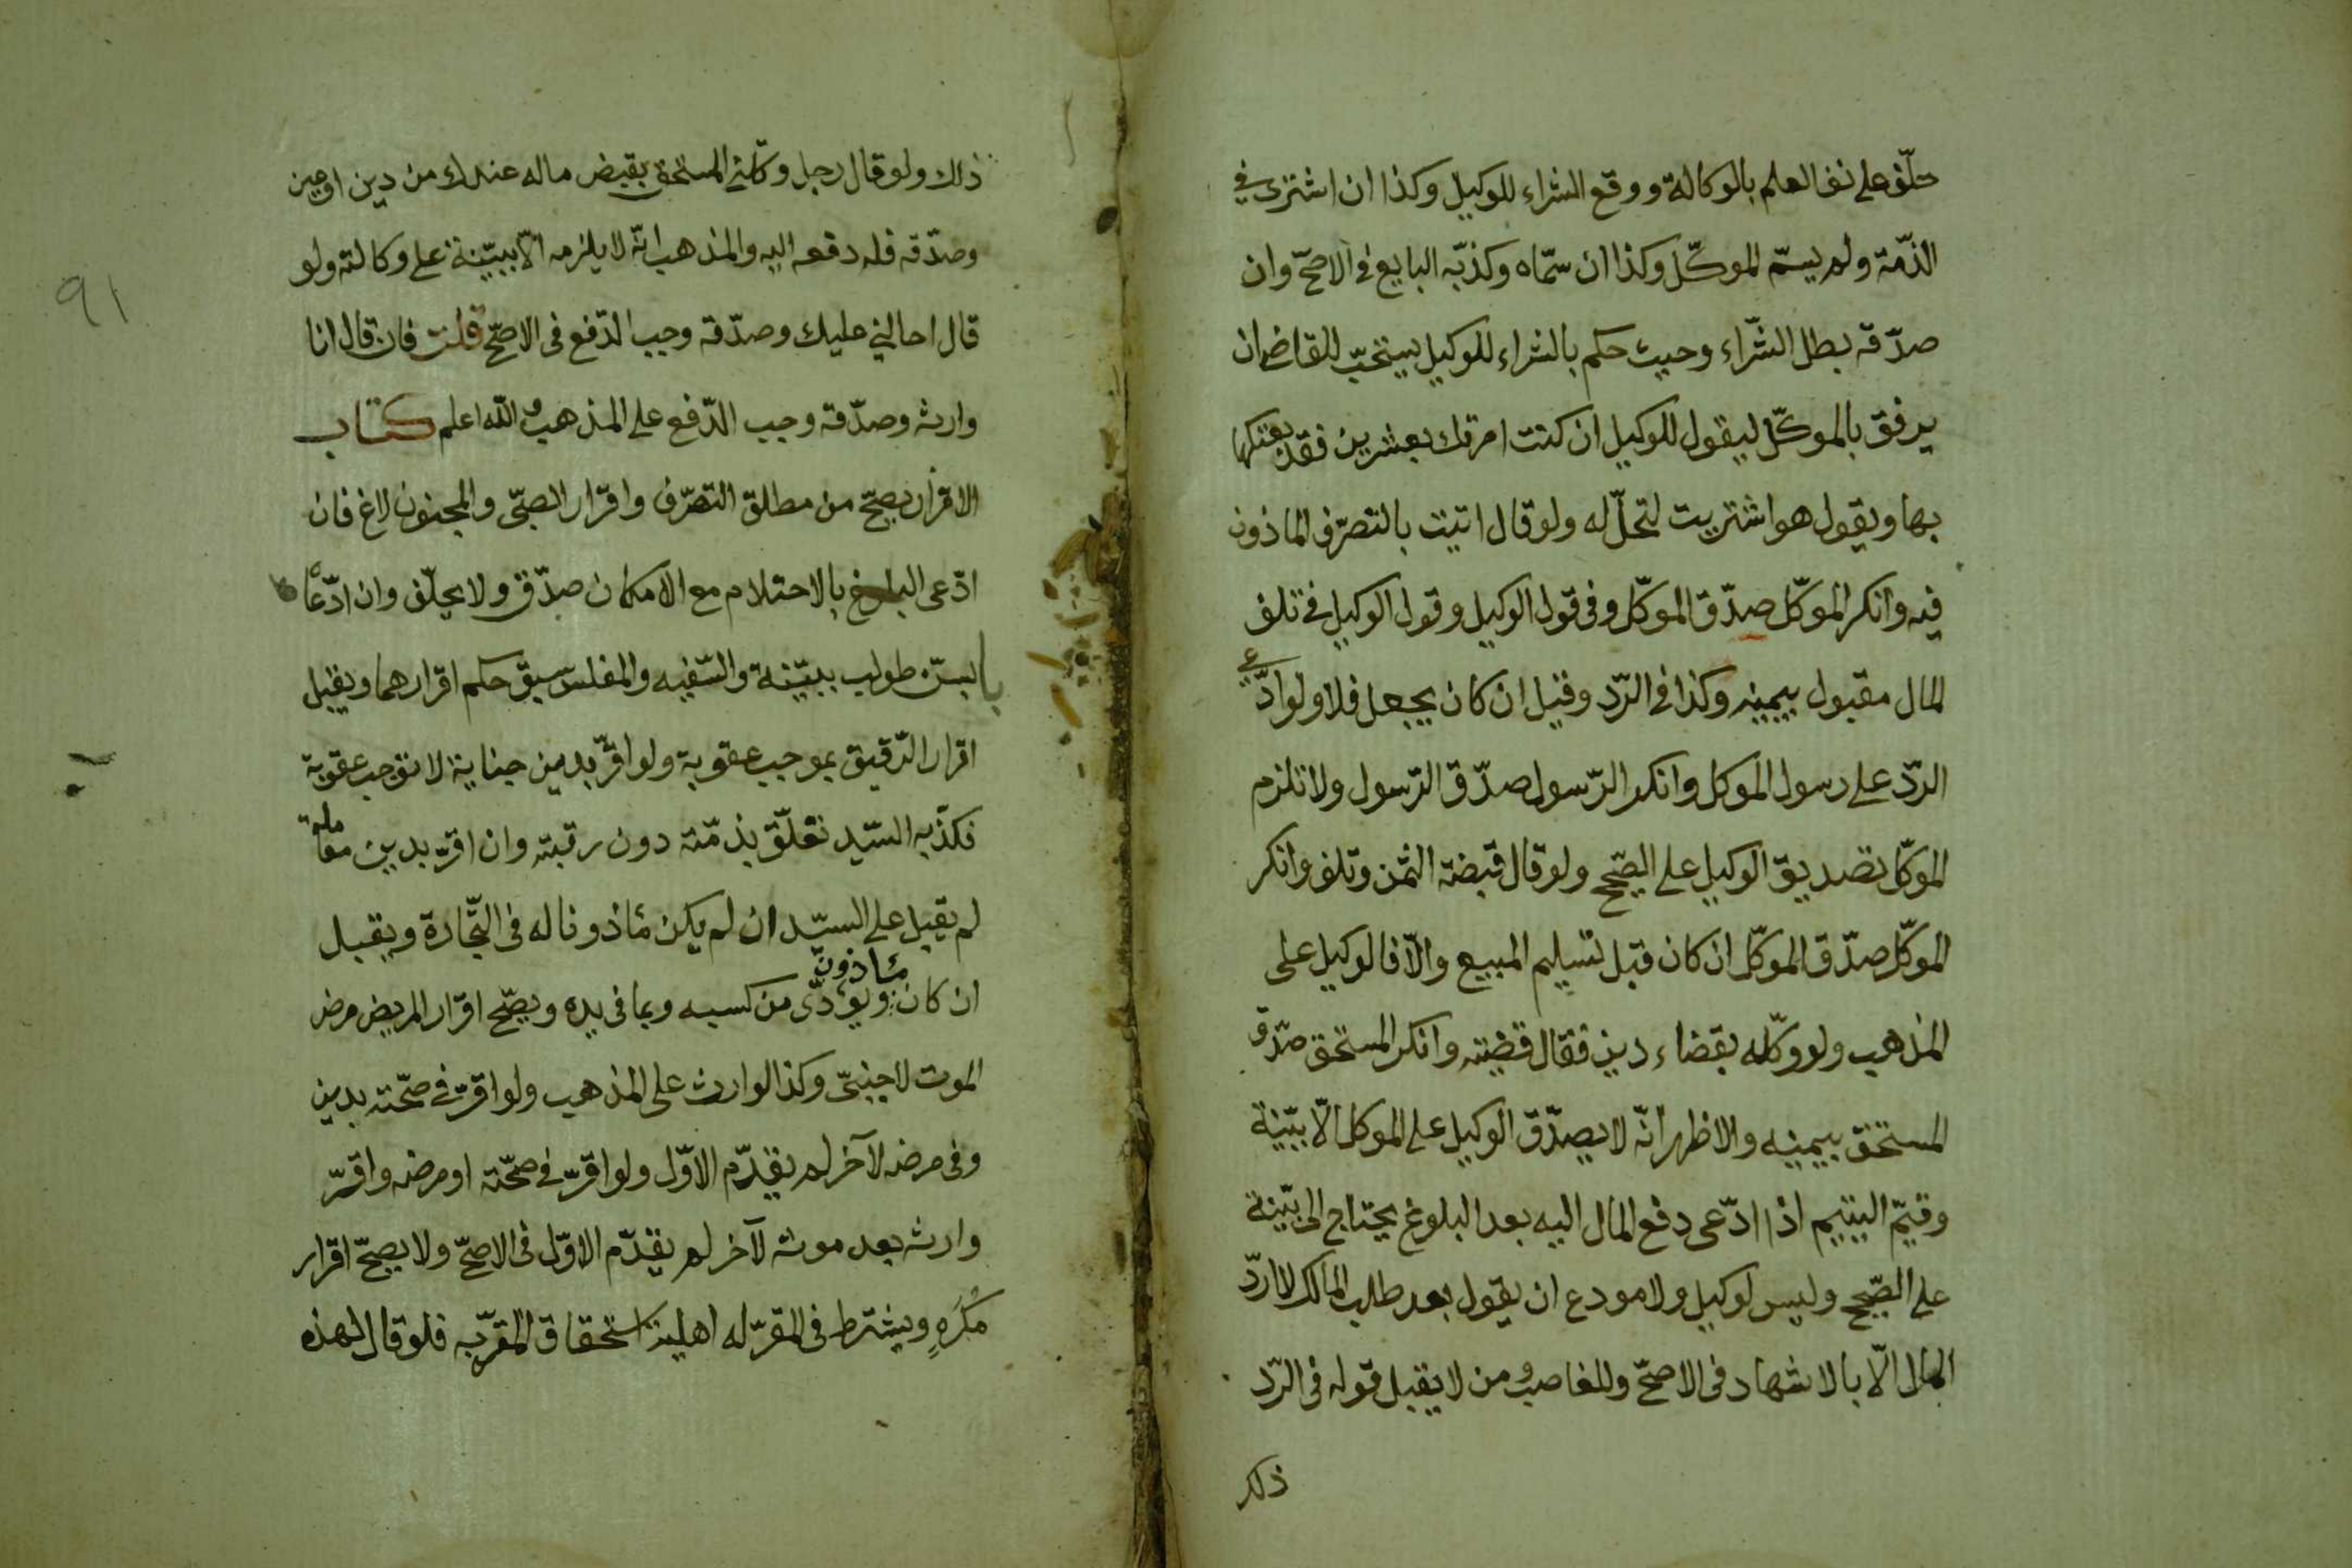 حلّف على نفى العلم بالوكالة ووقع الشراء للوكيل وكذا ان اشترى في
الذمّة ولم يسمّ الموكّل وكذا ان سمّاه وكذبّه البايع في الاصحّ وان
صدّقه بطل الشّراء وحيث حكم بالشراء للوكيل يستحبّ للقاضى ان
يرفق بالموكّل ليقول للوكيل ان كنت امرتك بعشرين فقد بعتكها
بها ويقول هو اشتريت لتحلّ له ولو قال اتيت بالتصرّف الماذون
فيه وانكر الموكّل صدّق الموكّل وفى قول الوكيل وقول الوكيل في تلف
المال مقبول بيمينه وكذا في الرّد وقيل ان كان بجعل فلا ولو ادّعى
الردّ على رسول الموكل وانكر الرّسول صدّق الرّسول ولا تلزم
الموكّل تصديق الوكيل على الصّحيح ولو قال قبضت الثّمن وتلف وانكر
الموكّل صدّق الموكّل ان كان قبل تسليم المبيع والّا فالوكيل على
المذهب ولو وكّله بقضاء دين فقال قضيته وانكر المستحق صدّق
المستحق بيمينه والاظهر انّه لا يصدّق الوكيل على الموكل الّا ببيّنة
وقيّم اليتيم اذا ادّعى دفع المال اليه بعد البلوغ يحتاج الى بيّنة
على الصّحيح وليس لوكيل ولا مودع ان يقول بعد طلب المالك لا اردّ
المال الّا بالاشهاد فى الاصحّ وللغاصب ومن لا يقبل قوله فى الرّد
ذلك
ذلك ولو قال رجل وكّلني المستحق بقبض ماله عندك من دين او عين
وصدّقه فله دفعه اليه والمذهب انّه لا يلزمه الّا ببيّنة على وكالته ولو
قال احالني عليك وصدّقه وجب الدّفع فى الاصحّ قلت فان قال انا
وارثه وصدّقه وجب الدّفع على المذهب والله اعلم كتاب
الاقرار يصحّ من مطلق التصرّف واقرار الصبّى والمجنون لاغ فان
ادّعى البلوغ بالاحتلام مع الامكان صدّق ولا يحلّف وان ادّعاه
بالسنّ طولب ببيّنة والسّفيه والمفلس سبق حكم اقرارهما ويقبل
اقرار الرّقيق بموجب عقوبة ولو اقرّ بدين جناية لا توجب عقوبة
فكذّبه السّيد تعلّق بذمّته دون رقبته وان اقرّ بدين معاملة
لم يقبل على السيّد ان لم يكن مأذونا له فى التّجارة ويقبل
ان كان مأذون ويؤدّى من كسبه وبما فى يده ويصّح اقرار المريض مرض
الموت لاجنبىّ وكذا لوارث على المذهب ولو اقرّ في صحّته بدين
وفى مرضه لآخر لم يقدّم الاوّل ولو اقرّ في صحّته او مرضه واقرّ
وارثه بعد موته لآخر لم يقدّم الاوّل فى الاصحّ ولا يصحّ اقرار
مُكْرَهٍ ويشترط فى المقرّ له اهلية استحقاق المقرّ به فلو قال لهذه
٩١